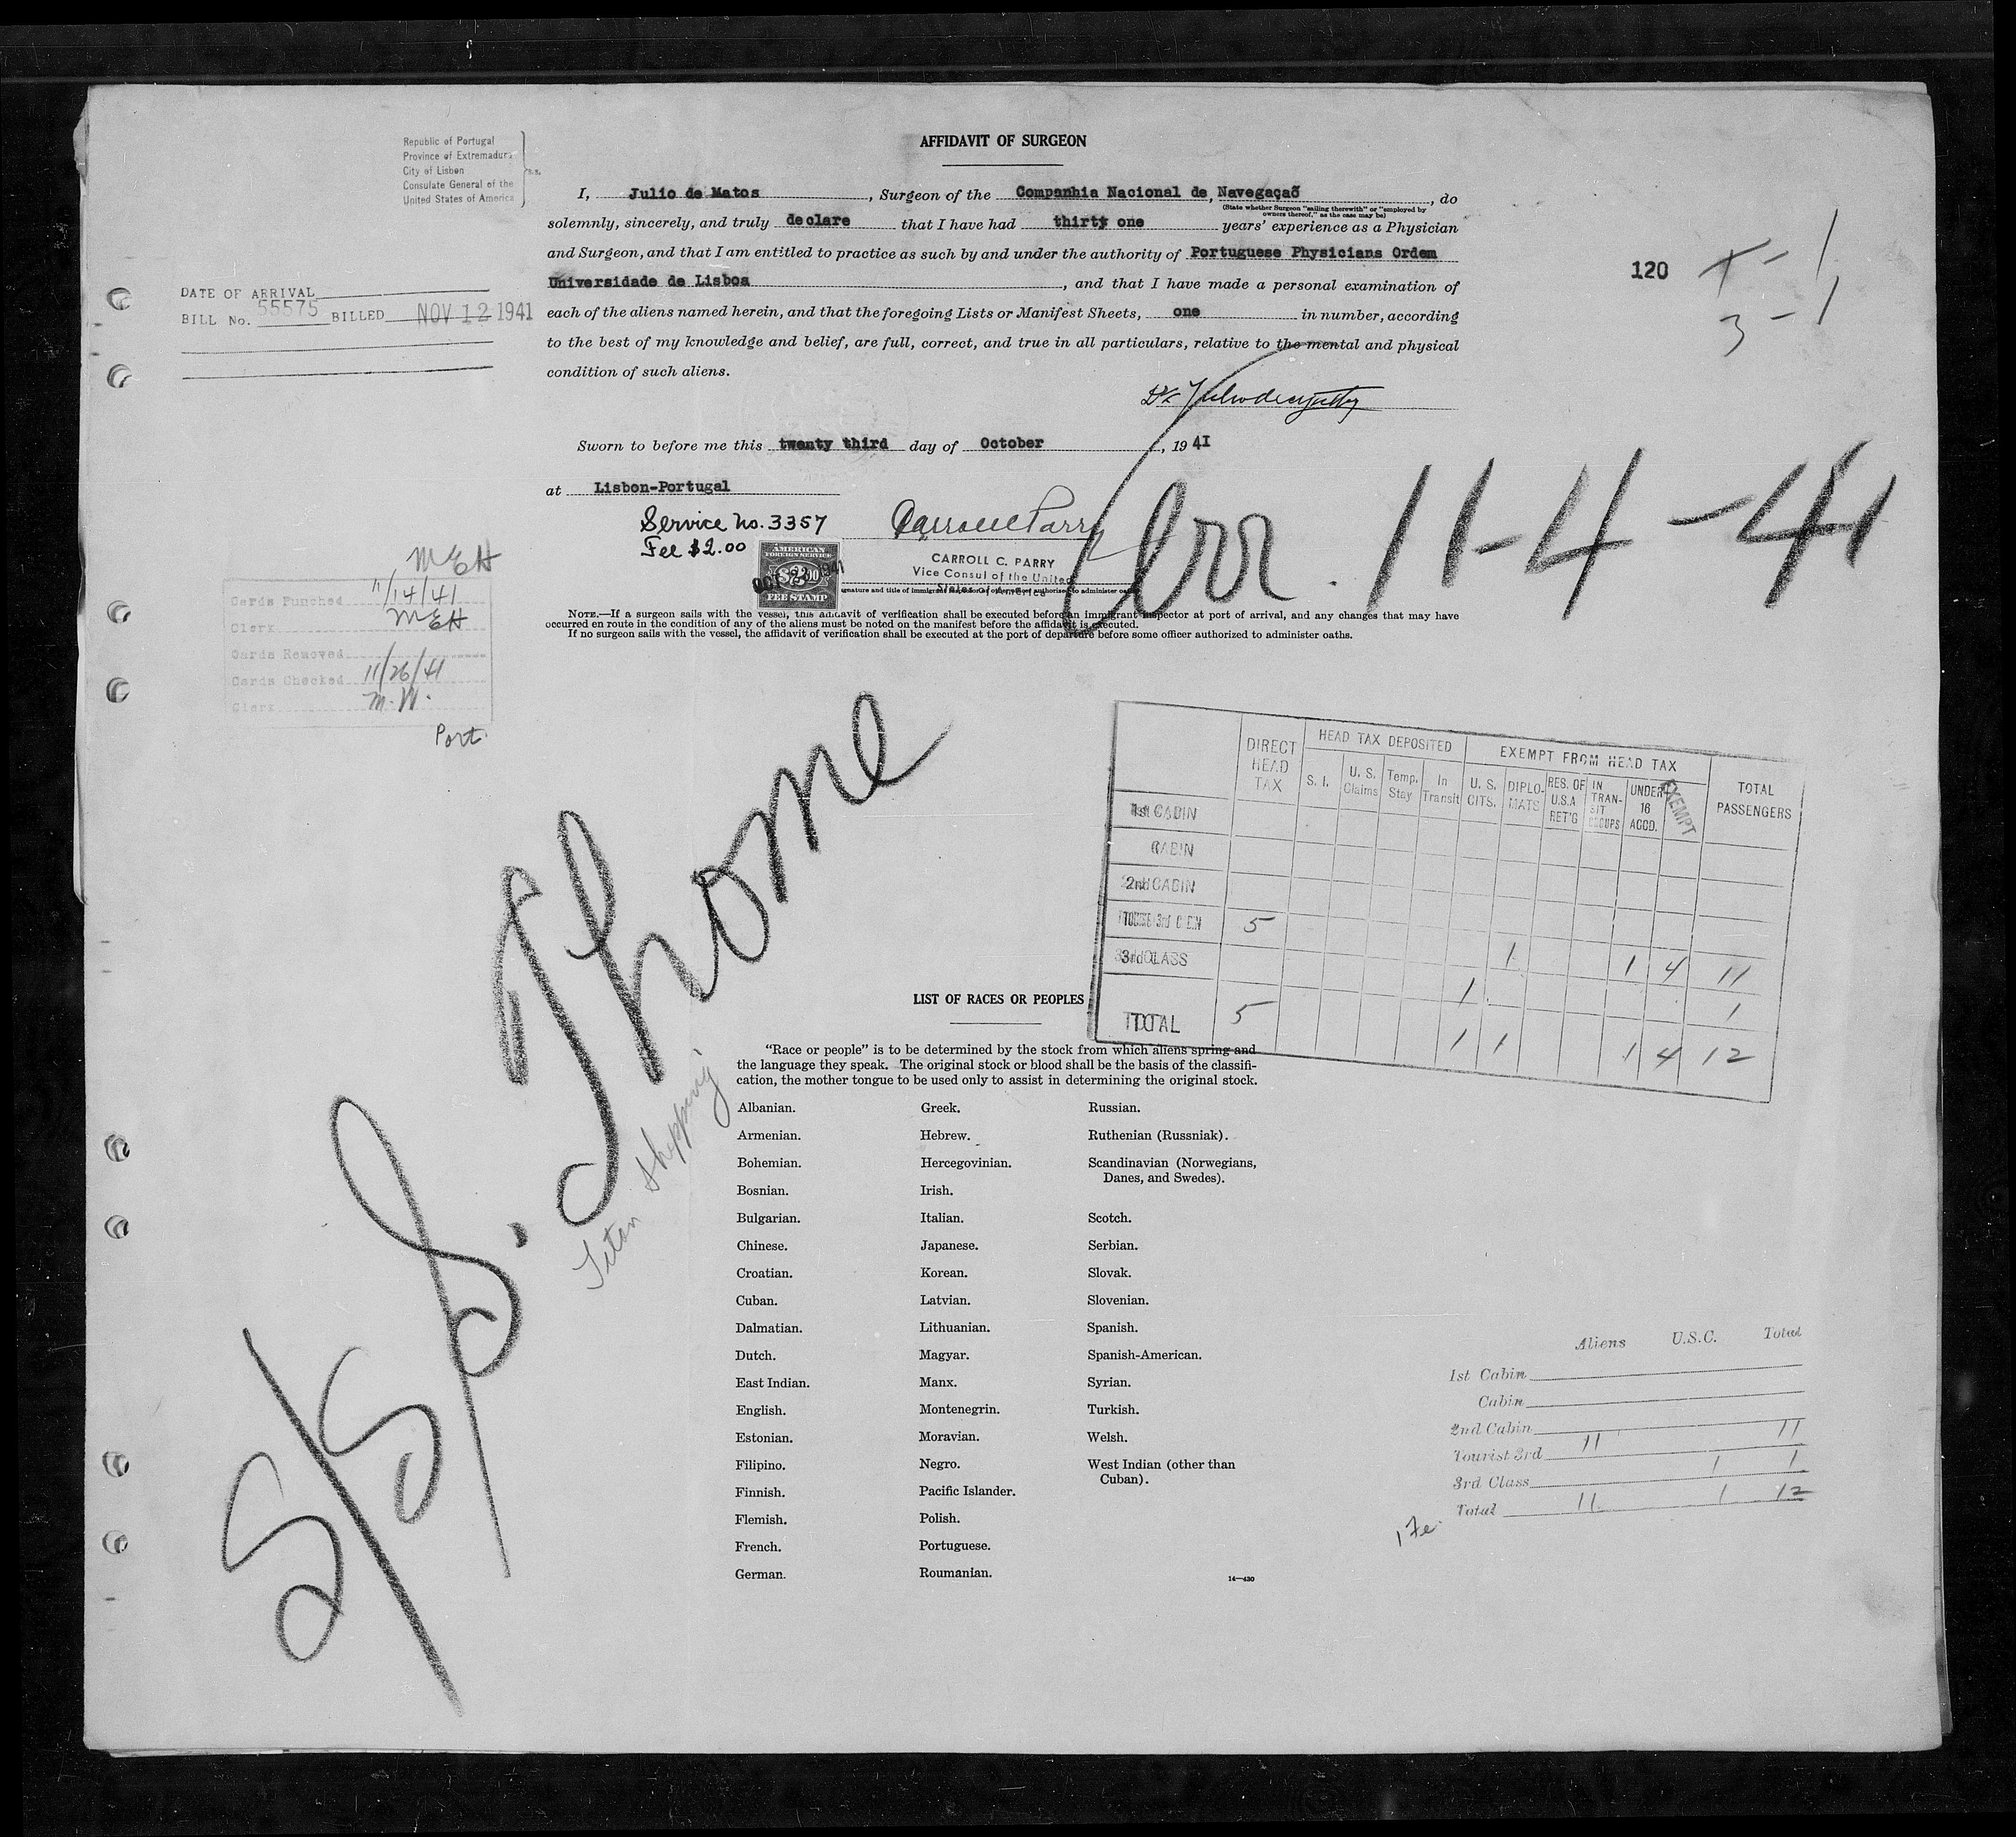 AFFIDAVIT OF SURGEON
Republic of Portugal
Province of Extremadura
City of Lisbon
Consulate General of the
United States of America
s.s.
I, Julio de Matos, Surgeon of the Companhia Nacional de, Navegaçaõ, do
(State whether Surgeon "sailing therewith" or "employed by
owners thereof," as the case may be)
solemnly, sincerely, and truly declare that I have had thirty one years' experience as a Physician
and Surgeon, and that I am entitled to practice as such by and under the authority of Portuguese Physicians Ordem
Universidade de Lisboa, and that I have made a personal examination of
each of the aliens named herein, and that the foregoing Lists or Manifest Sheets, one in number, according
to the best of my knowledge and belief, are full, correct, and true in all particulars, relative to the mental and physical
condition of such aliens.
120
3-1
DATE OF ARRIVAL
BILL No. 55575 BILLED NOV 12 1941
Sworn to before me this twenty third day of October, 1941
at Lisbon-Portugal
Service No. 3357
Fee $2.00
AMERICAN
FOREIGN SERVICE
$2.00
FEE STAMP
CARROLL C. PARRY
Vice Consul of the United
States of America
Arr. 11-4-41
NOTE.—If a surgeon sails with the vessel, this affidavit of verification shall be executed before an immigrant inspector at port of arrival, and any changes that may have
occurred en route in the condition of any of the aliens must be noted on the manifest before the affidavit is executed.
If no surgeon sails with the vessel, the affidavit of verification shall be executed at the port of departure before some officer authorized to administer oaths.
MEH
Cards Punched 11/14/41
Clerk MEH
Cards Removed
Cards Checked 11/26/41
Clerk M.W.
Port.
S/S S. Thome
Titan Shipping
DIRECT HEAD TAX
HEAD TAX DEPOSITED
EXEMPT FROM HEAD TAX
TOTAL PASSENGERS
S. I.
U. S. Claims
Temp. Stay
In Transit
U. S. CITS.
DIPLOMATS
RES. OF U.S.A RET'G
IN TRANSIT GROUPS
UNDER 16 ACCD.
EXEMPT
1st CABIN
CABIN
2nd CABIN
TOURIST 3rd CABIN 5 1 1 4 11
3rd CLASS 1 1
TOTAL 5 1 1 1 4 12
LIST OF RACES OR PEOPLES
"Race or people" is to be determined by the stock from which aliens spring and
the language they speak. The original stock or blood shall be the basis of the classifi-
cation, the mother tongue to be used only to assist in determining the original stock.
Albanian.
Armenian.
Bohemian.
Bosnian.
Bulgarian.
Chinese.
Croatian.
Cuban.
Dalmatian.
Dutch.
East Indian.
English.
Estonian.
Filipino.
Finnish.
Flemish.
French.
German.
Greek.
Hebrew.
Hercegovinian.
Irish.
Italian.
Japanese.
Korean.
Latvian.
Lithuanian.
Magyar.
Manx.
Montenegrin.
Moravian.
Negro.
Pacific Islander.
Polish.
Portuguese.
Roumanian.
Russian.
Ruthenian (Russniak).
Scandinavian (Norwegians,
Danes, and Swedes).
Scotch.
Serbian.
Slovak.
Slovenian.
Spanish.
Spanish-American.
Syrian.
Turkish.
Welsh.
West Indian (other than
Cuban).
14—430
Aliens U.S.C. Total
1st Cabin
Cabin
2nd Cabin
Tourist 3rd 11 11
3rd Class 1 1
Total 11 1 12